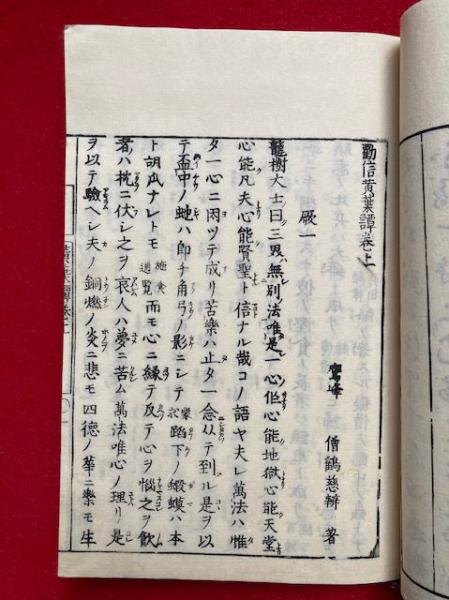 勸信黄葉譚卷上
鷲峰 僧諦慈辯 著
厥一
龍樹大士曰三界無別法唯是一心作心能地獄心能天堂
心能凡夫心能賢聖ト信ナル哉コノ語ヤ夫レ萬法ハ惟
タ一心ニ因ツテ成リ苦樂ハ止タ一念从テ到ル是ヲ以
テ盃中ノ虵ハ即チ角弓ノ影ニシテ 蹈下ノ蝦蟆ハ本
ト胡瓜ナレトモ 而モ心ニ縁テ反テ心ヲ惱之ヲ飲
者ハ枕ニ伏シ之ヲ哀人ハ夢ニ苦ム萬法唯心ノ理リ是
ヲ以テ驗ヘシ夫ノ銅爐ノ炎ニ悲モ四德ノ華ニ樂モ生